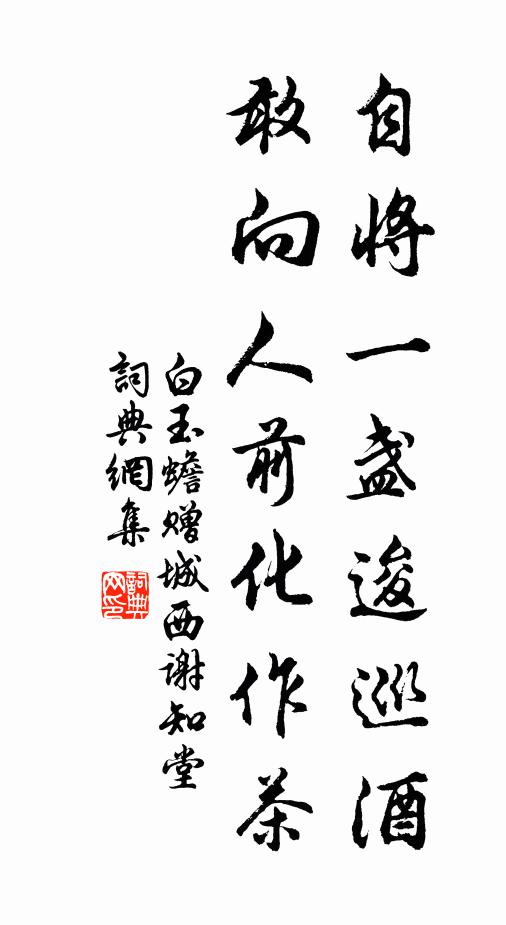 自將一盞逡巡酒
敢向人前化作茶
白玉蟾贈城西謝知堂
詞典網集
詞典网印